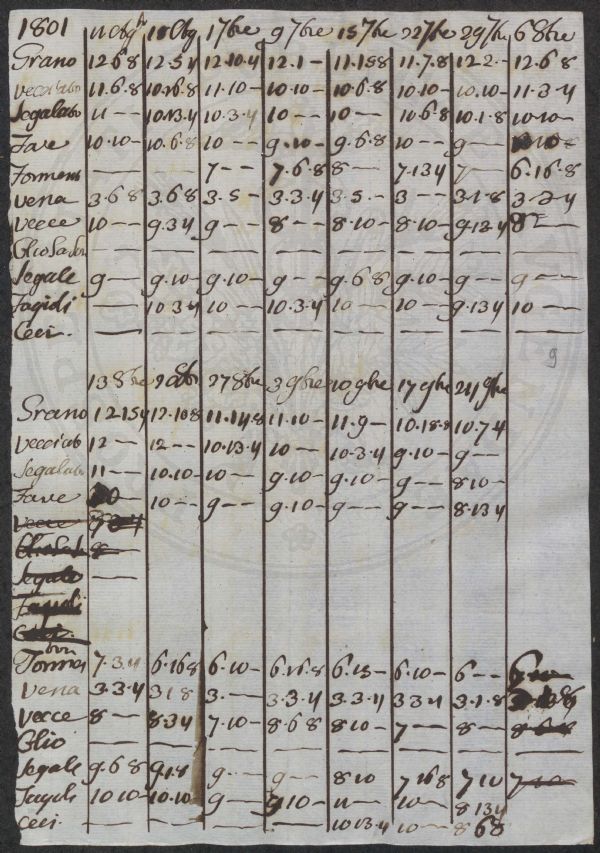 1801 11 Obg 18 Obg 17bre 9 7bre 15 7bre 22 7bre 29 7bre 6 8bre
Grano 12.6.8 12.5.4 12.10.4 12.1– 11.15.8 11.7.8 12.2– 12.6.8
vecciato 11.6.8 10.16.8 11.10– 10.10– 10.6.8 10.10– 10.10– 11.3.4
Segalato 11— 10.13.4 10.3.4 10— 10— 10.6.8 10.1.8 10.10–
Fave 10.10– 10.6.8 10— 9.10– 9.6.8 10— 9—
— — 7— 7.6.8 8— 7.13.4 7— 6.16.8
vena 3.6.8 3.6.8 3.5– 3.3.4 3.5– 3— 3.1.8 3.3.4
Vecce 10— 9.3.4 9— 8— 8.10– 8.10– 9.13.4 8—
— — — — — — — —
Segale 9— 9.10– 9.10– 9— 9.6.8 9.10– 9— 9—
Fagioli — 10.3.4 10— 10.3.4 10— 10— 9.13.4 10—
Ceci. — — — — — — — —
9
13 8bre 20 8bre 27 8bre 3 9bre 10 9bre 17 9bre 24 9bre
Grano 12.15.4 12.10.8 11.14.8 11.10– 11.9– 10.18.8 10.7.4
Vecciato 12— 12— 10.13.4 10— 10.3.4 9.10– 9—
Segalato 11— 10.10– 10— 9.10– 9.10– 9— 8.10–
Fave 10– 10— 9— 9.10– 9— 9— 8.13.4
Vecce
8—
Segale —
Fagioli
Ceci.
7.3.4 6.16.8 6.10– 6.16.8 6.13– 6.10– 6—
Vena 3.3.4 3.1.8 3.— 3.3.4 3.3.4 3.3.4 3.1.8
Vecce 8— 8.3.4 7.10– 8.6.8 8.10– 7— 8— 8.6.8
Olio — — — — — — —
Segale 9.6.8 9.1.8 9.— 9.— 8.10 7.16.8 7.10 7.10
Fagioli 10.10– 10.10– 9— 9.10– 11— 10— 8.13.4
Ceci. — — — — 10.13.4 10— 8.6.8